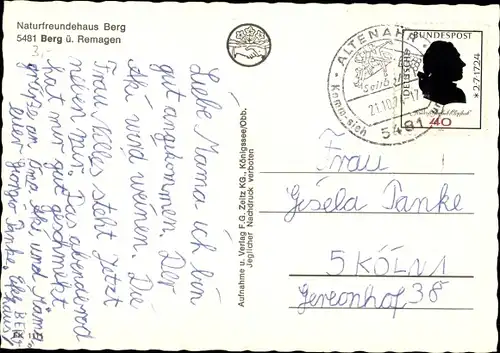 Naturfreundehaus Berg
5481 Berg ü. Remagen
3,-
Liebe Mama ich bin
gut angkommen. Der
Aki wird weinen. Die
Frau Kolles steht jetzt
neben mir. Das abendenrod
hat mir gut geschmekt
grüße an Oma Aki, und Mama
Aufnahme u. Verlag F. G. Zeitz KG., Königssee/Obb.
Jeglicher Nachdruck verboten
ALTENAHR
5481
DEUTSCHE BUNDESPOST
40
*2.7.1724
Frau
Gisela Panke
5 KÖLN 1
Gereonhof 38